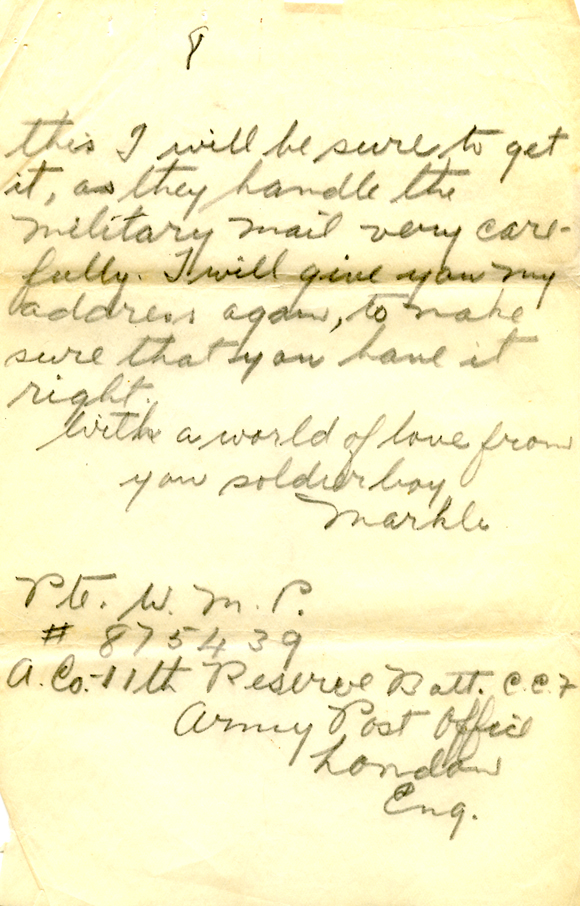 8
this I will be sure to get
it, as they handle the
military mail very care-
fully. I will give you my
address again, to make
sure that you have it
right.
With a world of love from
you soldier boy
Markle
Pte. W. M. P.
# 875439
A. Co. 11th Reserve Batt. C.E.F
Army Post Office
London
Eng.